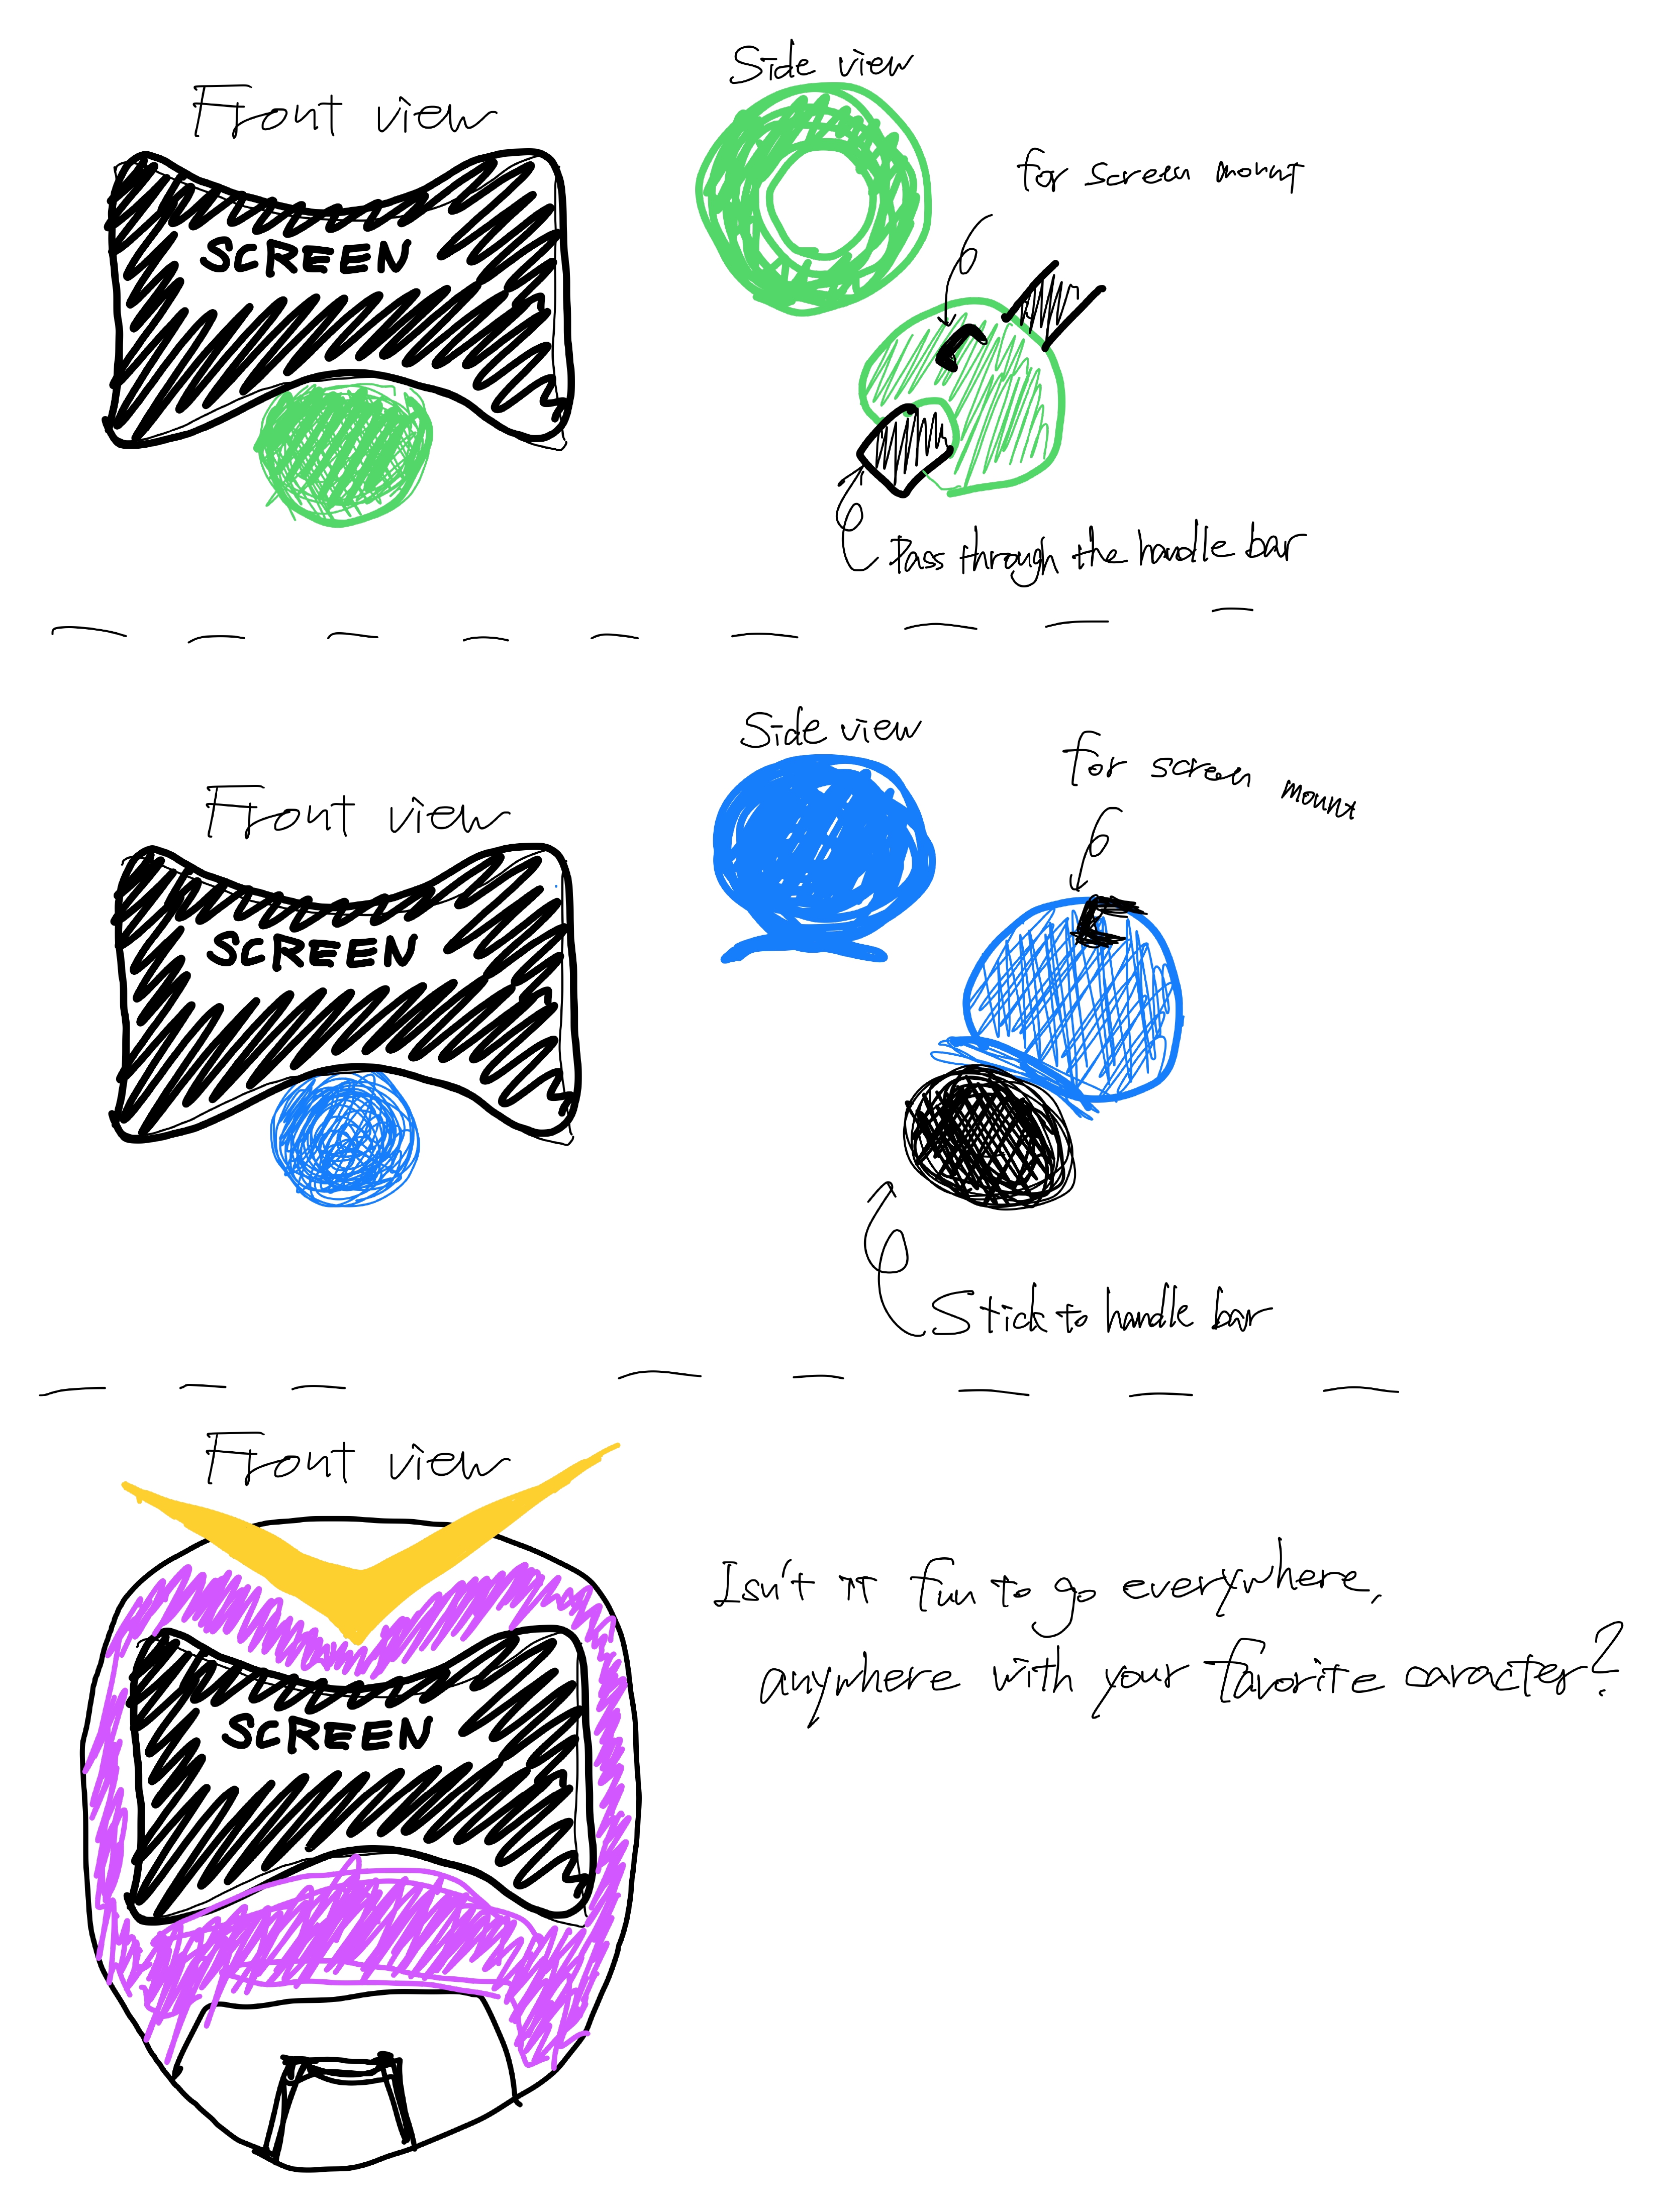 Front view
SCREEN
Side view
for screen mount
Pass through the handle bar
Front view
SCREEN
Side view
for screen mount
Stick to handle bar
Front view
SCREEN
Isn't it fun to go everywhere,
anywhere with your favorite caracter?